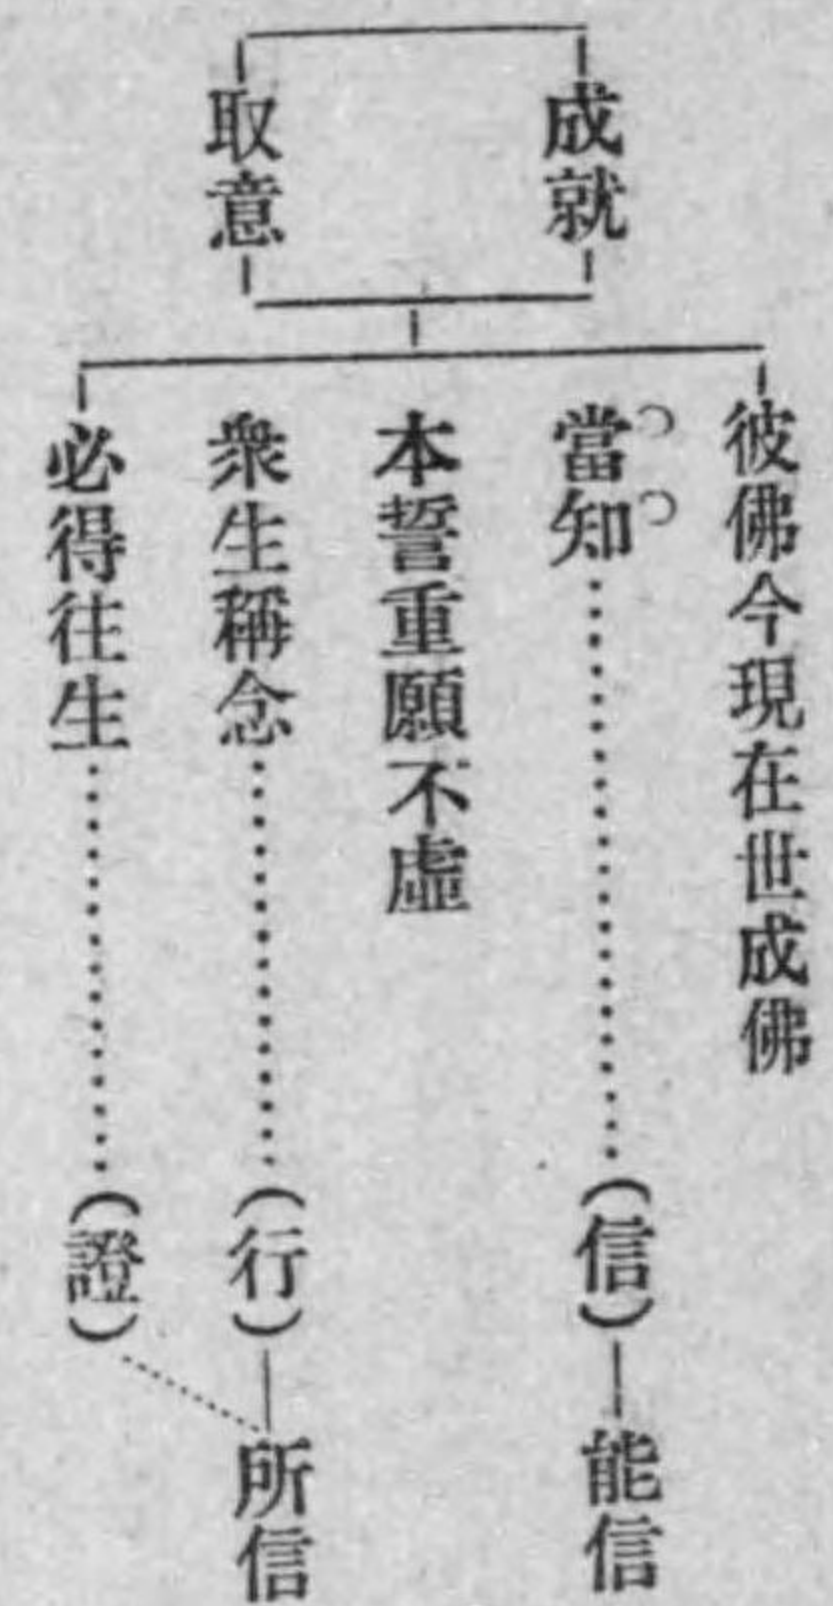 成就
取意
彼佛今現在世成佛
當知…………(信)—能信
本誓重願不虛
衆生稱念…………(行)—所信
必得往生…………(證)